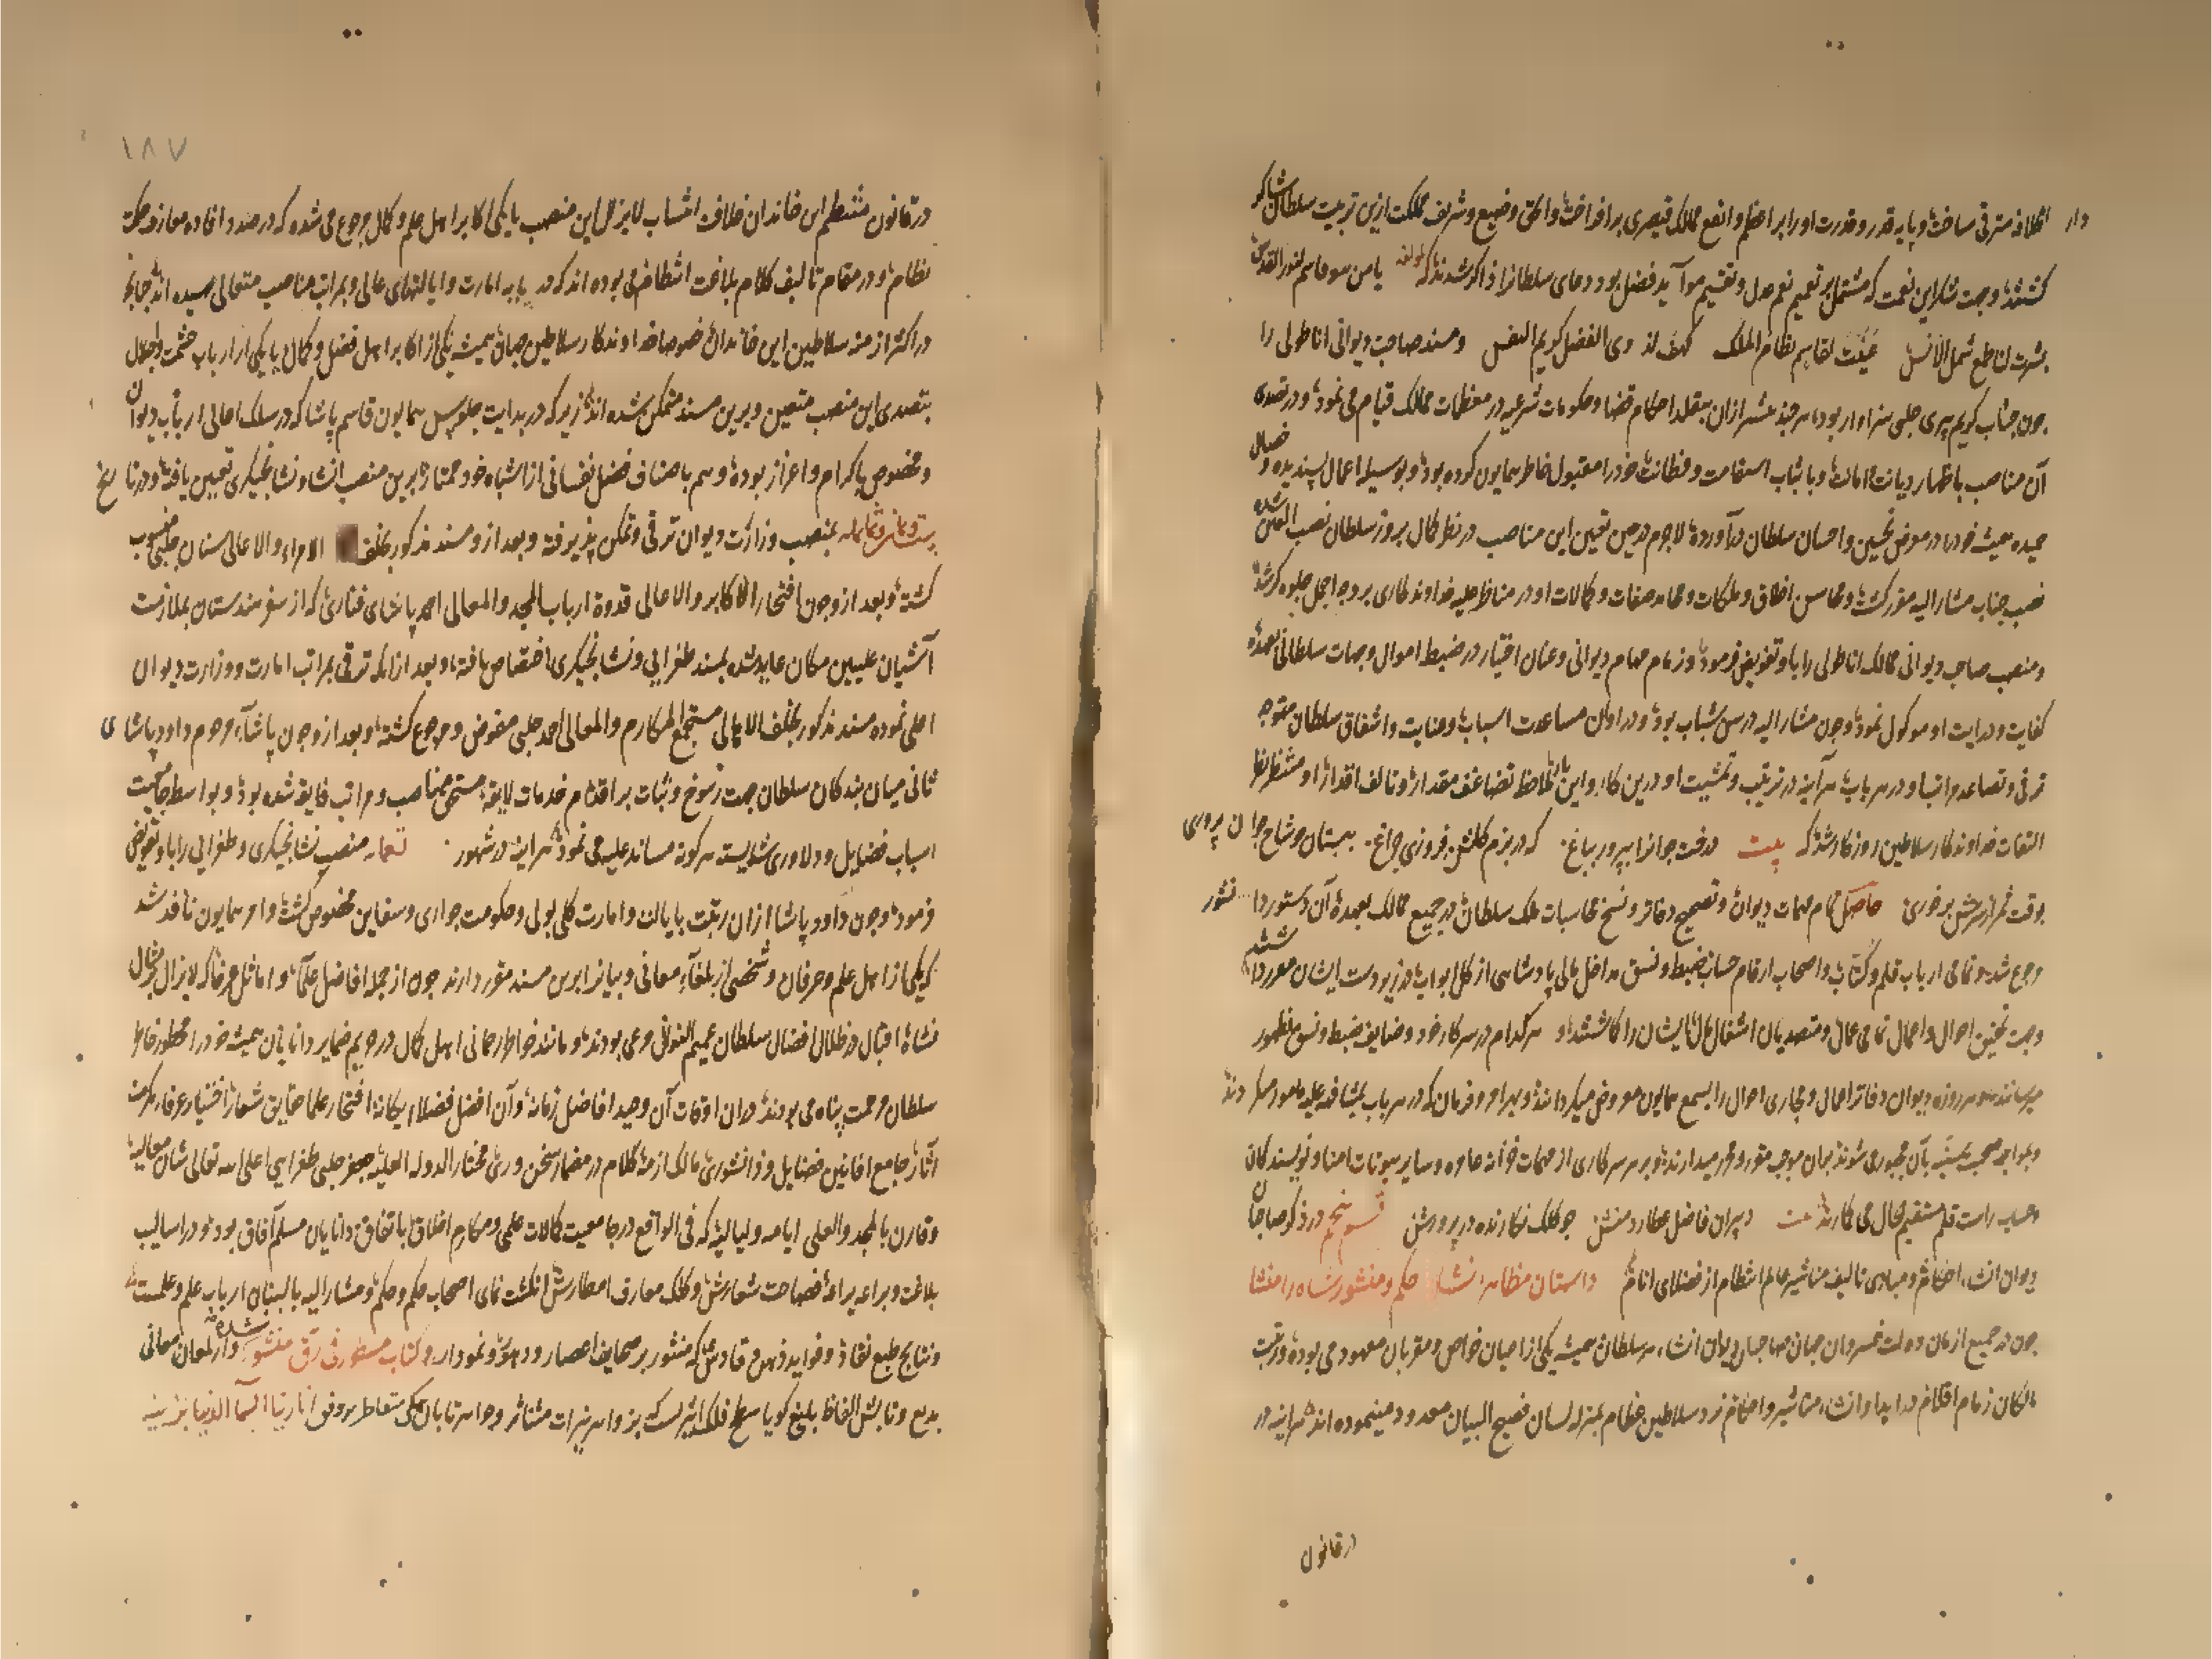 دار اظلاله مترقی ساخت و پایه قدر و قدرت او را بر اعظم و انفع ممالک قیصری برافراخت و الحق وضیع و شریف مملکت ازین تربیت سلطان شاکر
کشتند و جهت شکر این نعمت که مشتمل بر تعمیم نعم عدل و تقسیم موآید فضل بود دعای سلطانرا ذاکر شدند که لمولفه یا من سو قاسم لنور القدس
بشرت لناطع شمل الانس عینت لقاسم نظام الملک کهف لذوی الفضل کریم النفس و مسند صاحب دیوانی اناطولی را
چون جناب کریم پیری چلبی سزاوار بود هر چند پیشتر ازان بتقلد احکام قضا و حکومات شرعیه در معظمات ممالک قیام می نمود و در تصدی
آن مناصب باظهار دیانت و امانت و باثبات استقامت و فطانت خود را مقبول خاطر همایون کرده بود و بوسیله اعمال پسندیده و خصال
حمیده همیشه خود را در معرض تحسین و احسان سلطان درآورده لاجرم در حین تعیین این مناصب در نظر کمال پرور سلطان نصب العین شده
نصب جناب مشارالیه مقرر کشت و محاسن اخلاق و ملکات و محامد صفات و کمالات او در مناظر جلیه خداوندکاری بر وجه اجمل جلوه کر شد
و منصب صاحب دیوانی ممالک اناطولی را باو تفویض فرمود و زمام مهام دیوانی و عنان اختیار در ضبط اموال و جهات سلطانی بعهده
کفایت و درایت او موکول نمود و چون مشارالیه در سن شباب بود و در اوان مساعدت اسباب و عنایت و اشفاق سلطان متوجه
ترقی و تصاعد مراتب او در هر باب هرآینه در ترتیب و تمشیت او درین کار و این بار ملاحظ تضاعف مقدار و تالف اقدار او منتظر نظر
التفات خداوندکار سلاطین روزکار شد که بیت درخت جوانرا بپرور بباغ که در بزم کلشن فروزی چراغ ببستان چو شاخ جوان پروری
بوقت ثمر از برش برخوری حاصل تمام مهمات دیوان و تصحیح دفاتر و نسخ محاسبات ملک سلطان در جمیع ممالک بعهده آن دستور
رجوع شد و تمامی ارباب قلم و کتاب و اصحاب ارقام حساب ضبط و نسق مداخل مالی پادشاهی از کل ابواب در زیر دست ایشان مقرر شد
وجهت تحقیق احوال و اعمال تمامی عمال و متصدیان اشغال مال ایشان را کاشتند و هر کدام در سرکار خود وضایف ضبط و نسق بظهور
میرسانند و هر روزه دیوان دفاتر اعمال و مجاری احوال را بسمع همایون معروض میکردانند و بهر امر و فرمان که در هر باب بمشافهه علیه مامور میکردند
حساب راست قلم مستقیم حال می کارند بیت دبیران فاضل عطارد منش چو کلک نکارنده در پرورش قسم پنجم در ذکر صاحبان
دیوان انشاء احکام و مبادی تالیف مناشیر عالم انتظام از فضلای انام داستان مظاهر انشاء حکم و منشور شاه را منشا
چون در جمیع ازمان دولت خسروان جهان صاحبان دیوان انشاء هر سلطان همیشه یکی از اعیان خواص و مقربان معهود می بوده و رتبت
مالکان زمام اقلام در ابداء و انشاء مناشیر و احکام نزد سلاطین عظام بمنزله لسان فصیح البیان معدود مینموده اند هرآینه در
در قانون
١٨٧
در قانون منتظم این خاندان خلافت انتساب لایزال این منصب بایکی اکابر اهل علم و کمال مرجوع می شده که در صدد افاده معارف و حکمت
نظام و در مقام تالیف کلام بلاغت انتظام می بوده اند که در پایه امارت و ایالتهای عالی و بمراتب مناصب متعالی رسیده اند چنانچه
در اکثر ازمنه سلاطین این خاندان خصوصا خداوندکار سلاطین جهان همیشه یکی از اکابر اهل فضل و کمال یا یکی از ارباب حشمت و اجلال
بتصدی این منصب متعین و برین مسند متمکن شده اند زیرکه در بدایت جلوس همایون قاسم پاشا که در سلک اعالی ارباب دیوان
و مخصوص باکرام و اعزاز بوده و هم باصناف فضل نفسانی از اشباه خود ممتاز برین منصب انشا و نشانجیکری تعیین یافته و در تاریخ
بمنصب وزارت دیوان ترقی و تمکن پذیرفته و بعد ازو مسند مذکور بخلف الامراء والاعالی سنان چلبی منسوب
کشته و بعد ازو چون افتخار الاکابر والاعالی قدوة ارباب المجد والمعالی احمد پاشای فناری که از سفر هندستان بملازمت
آشیان علیین مکان عاید شده بمسند طغرایی و نشانجیکری اختصاص یافته و بعد از انکه ترقی بمراتب امارت و وزارت دیوان
اعلی نموده مسند مذکور بخلف الاهالی مستجمع المکارم والمعالی احمد چلبی مفوض و مرجوع کشته و بعد ازو چون پاشاء مرحوم داود پاشای
ثانی میان بندکان سلطان جهت رسوخ و ثبات بر اقدام خدمات لایقه مستحق مناصب و مراتب فایقه شده بود و بواسطه جامعیت
اسباب فضایل و دلاوری شایسته هر کونه مساند علیه می نمود هرآینه در شهور منصب نشانجیکری و طغرایی را باو تفویض
فرمود و چون داود پاشا ازان رتبت بایالت و امارت کلی بولی و حکومت جواری و سفاین مخصوص کشت و امر همایون نافذ شد
که یکی از اهل علم و عرفان و شخصی از بلغاء معانی و بیانرا برین مسند مقرر دارند چون از جمله افاضل علما و اماثل عرفا که لایزال
نشاة اقبال در ظلال افضال سلطان عمیم النوال مرعی بودند و مانند خواطر رحمانی اهل کمال در حریم ضمایر دانایان همیشه خود را محظور خاطر
سلطان مرحمت پناه می بودند دران اوقات آن وحید افاضل زمانه و آن افضل فضلاء یکانه افتخار علما حقایق شعار اختیار عرفاء مکرمت
آثار جامع افانین فضایل و دانشوری مالک ازمه کلام در مضمار سخن وری مختار الدوله العلیه جعفر چلبی طغرایی اعلی الله تعالی شان معالیه
و قارن بالمجد والعلی ایامه و لیالیه که فی الواقع در جامعیت کالات علمی و مکارم اخلاق باتفاق دانایان مسلم آفاق بود و در اسالیب
بلاغت و براعه یراعه فصاحت شعارش و کلک معارف امطارش انکشت نمای اصحاب حکم و حکم و مشارالیه بالبنان ارباب علم و علم است
و نتایج طبع نقاد و فواید ذهن وقادش که منثور بر صحایف اعصار و دهور و نمودار و کتاب مسطور فی رق منشور شده و از لمعان معانی
بدیع و تابش الفاظ بلیغ کویا سطح فلک اثیرست که بزواهر نیرات متناثر و جواهر تابان متقاطر بر وفق انا زینا السماء الدنیا بزینة